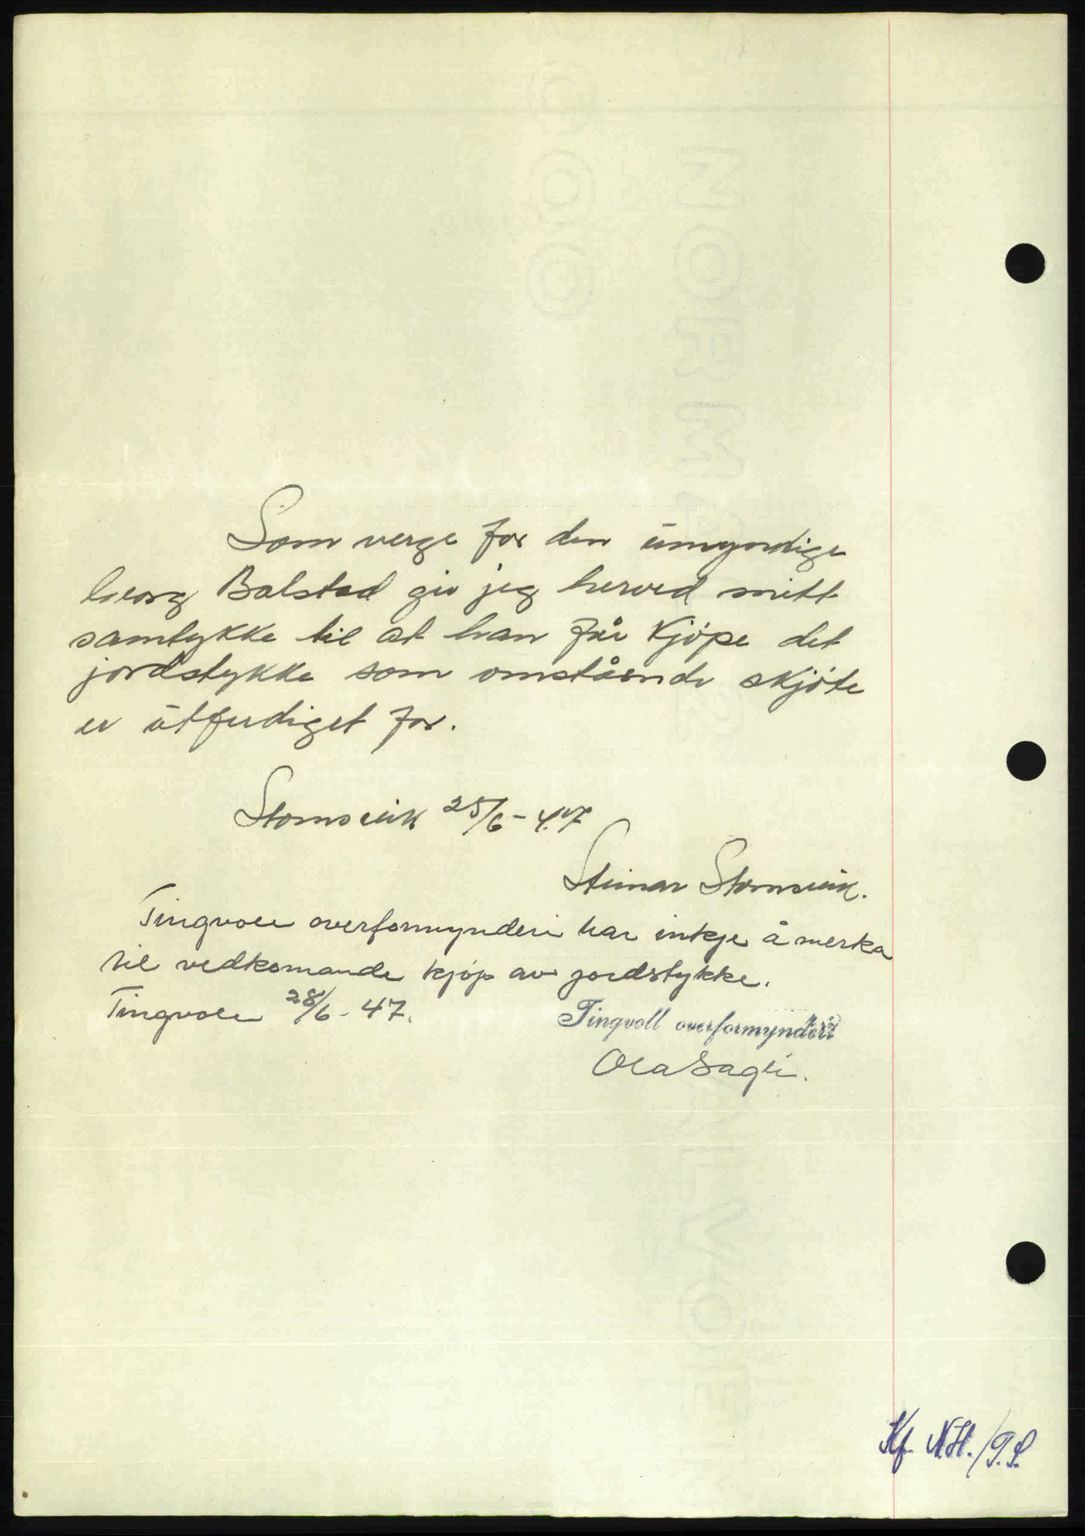 Som verge for den ümyndige
Georg Balstad gir jeg herved mitt
samtykke til at han får kjöpe det
jordstykke som omstående skjöte
er ütferdiget for.
Stomsvik 25/6-47
Steinar Stomsvik.
Tingvoll overformynderi har inkje å merka
til vedkomande kjøp av jordstykke.
Tingvoll 28/6-47.
Tingvoll overformynderi
Ola Sagli.
Kf. N.H./J.L.
NORMAL